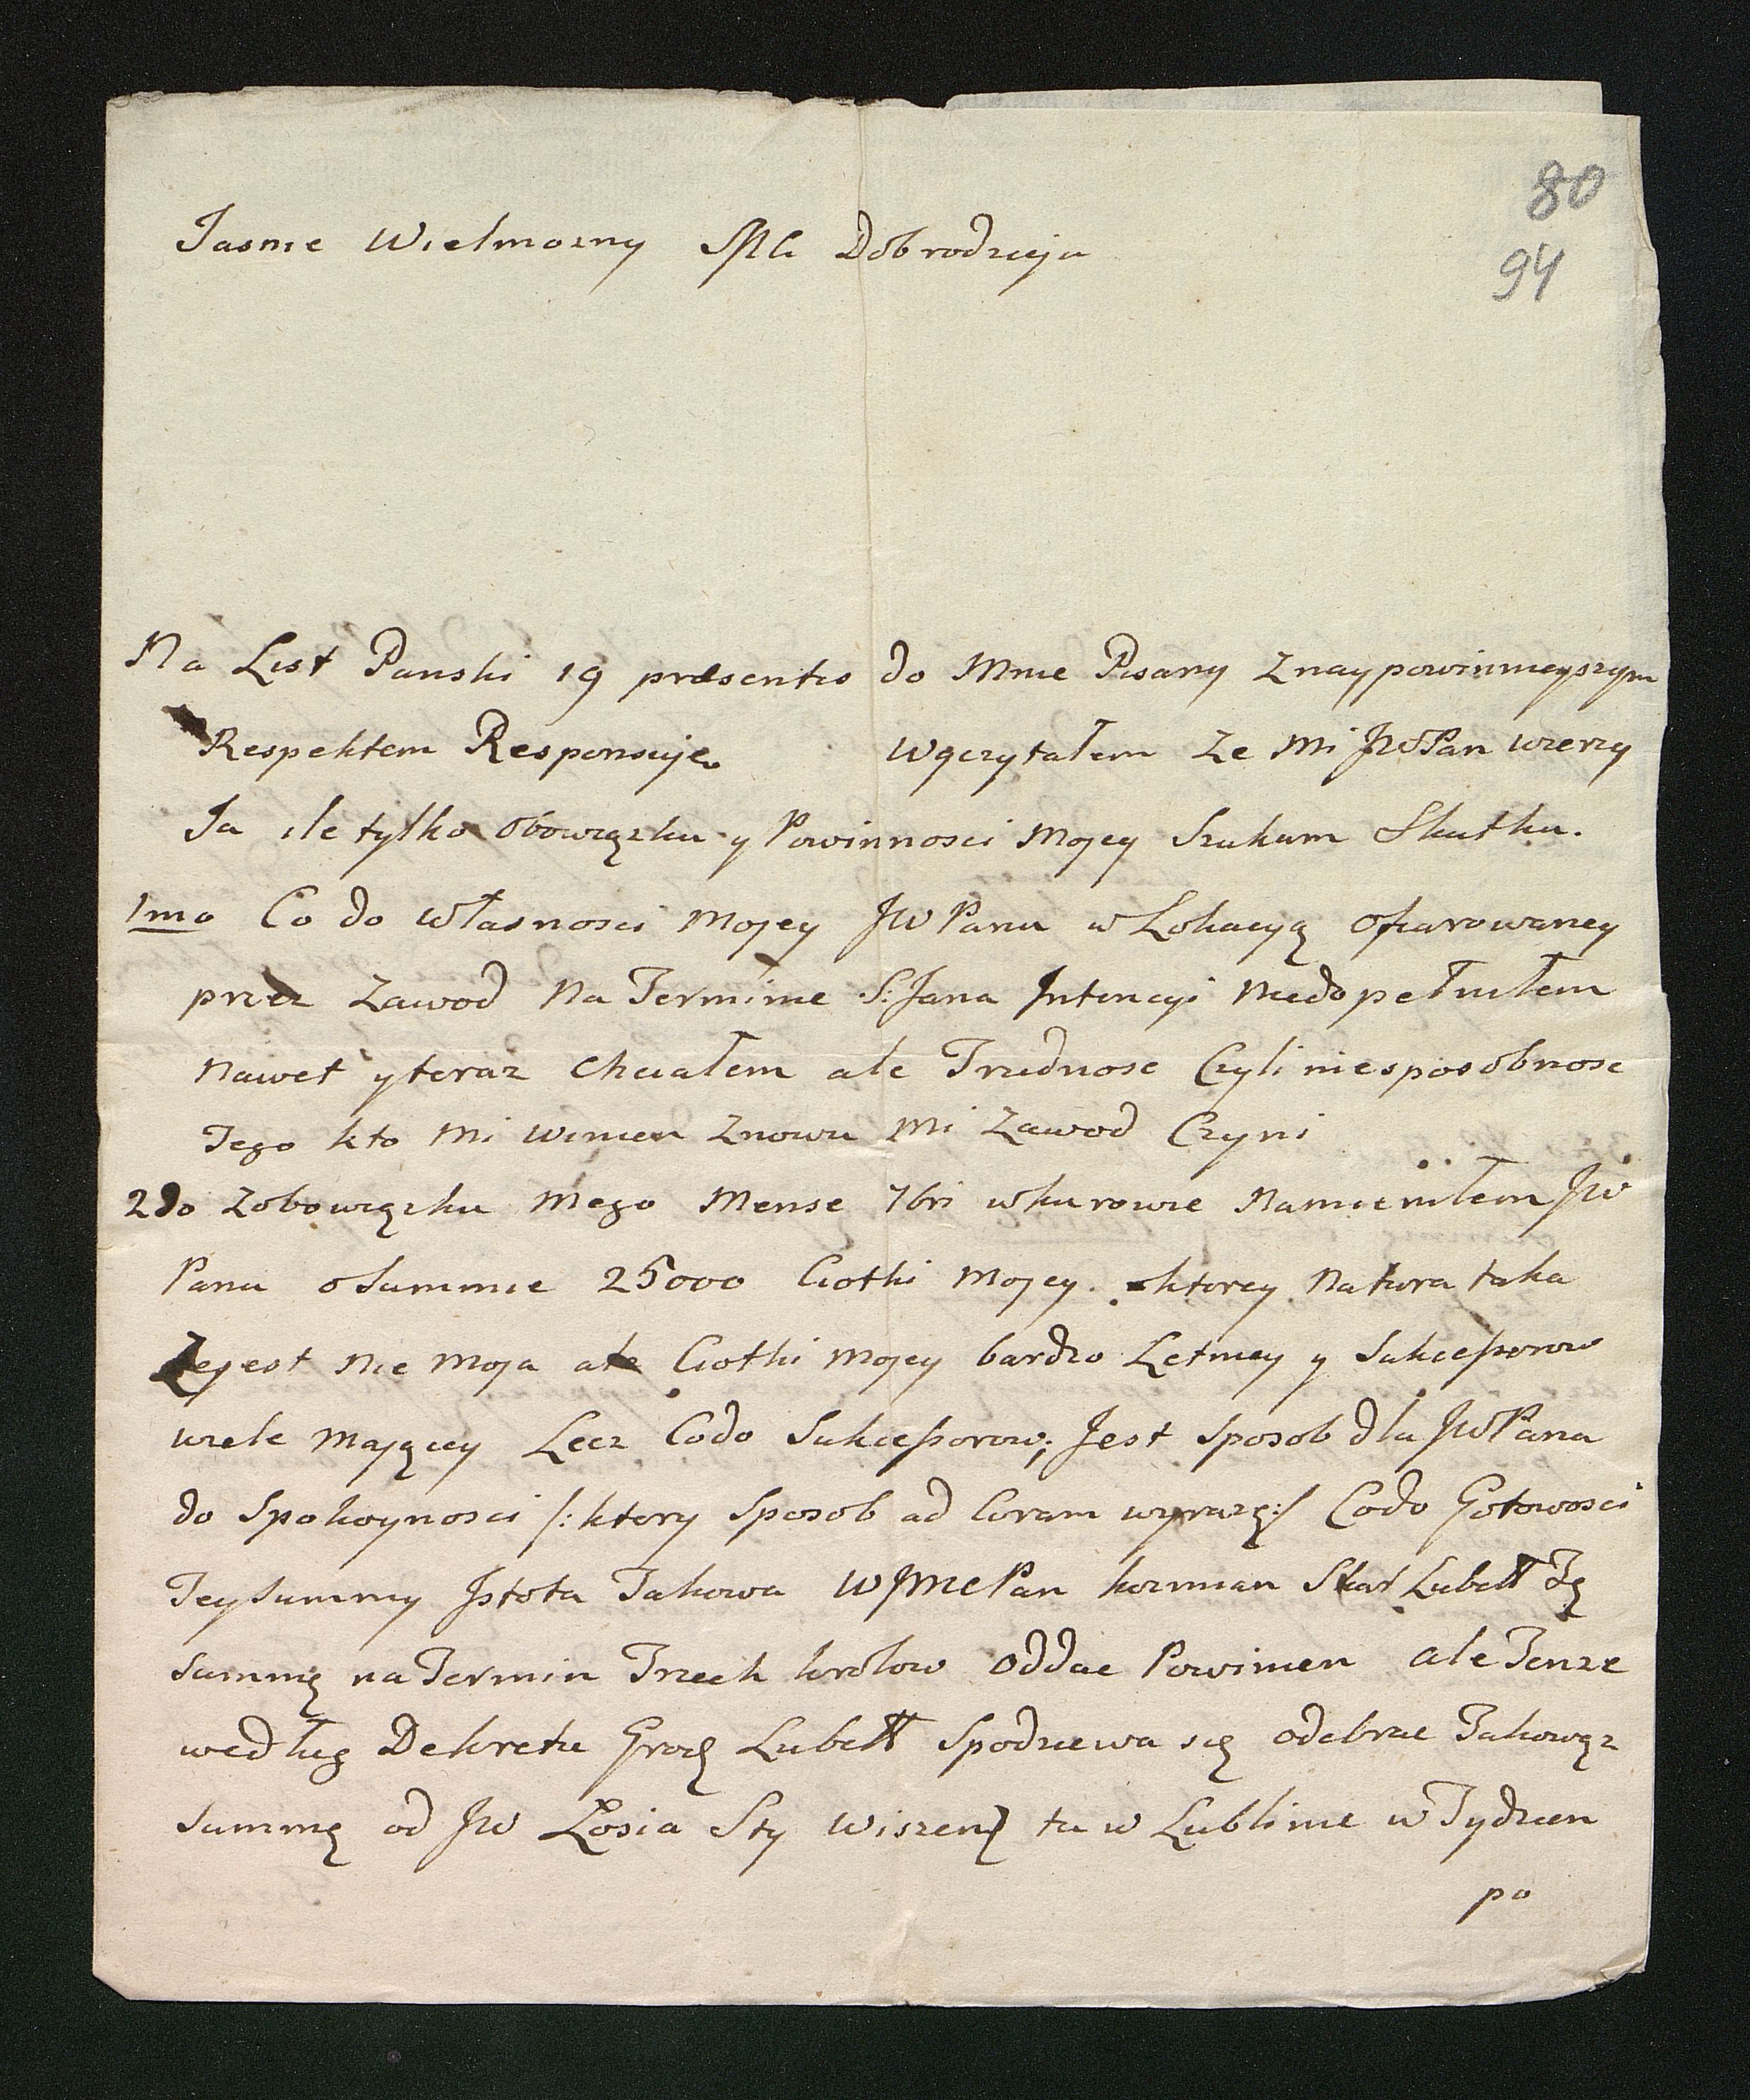 80
94
Jasnie Wielmozny Dobrodzieju
Na List Panski 19 præsentis do Mnie Pisany Znaypowinnieyszym
Respektem Responsuje. Wyczytałem ze mi JWPan wierzy
Ja ile tylko Obowiązku y Powinnosci Mojey Szukam Skutku.
1mo Co do własnosci Mojey JWPanu w Lokacyą ofiarowaney
przez Zawod Na Terminie S: Jana Jntencyi niedopełniłem
Nawet y teraz chciałem ale Trudnosc Czyli niesposobnosc
Tego kto Mi winien Znowu Mi Zawod Czyni
2do Zobowiązku mego Mense 7bri w kurowie Namieniłem JW
Panu o Summie 25000 Ciotki Mojey ktorey Natura taka
Ze jest Nie Moja ale Ciotki Mojey bardzo Letniey y Sukcessorow
wiele Mającey Lecz Codo Sukcessorow; Jest sposob dla JWPana
do Spokoynosci /: ktory Sposob ad Coram wyrazę :/ Codo Gotowosci
Tey Summy Jstota Takowa WJMCPan kozmian Skar Lubell Tę
Summę na Termin Trzech krolow oddac Powinien ale Tenze
według Dekretu Grodz Lubell Spodziewa się odebrac Takowąz
Summę od JW Łosia Sty Wiszen tu w Lublinie w Tydzien
po